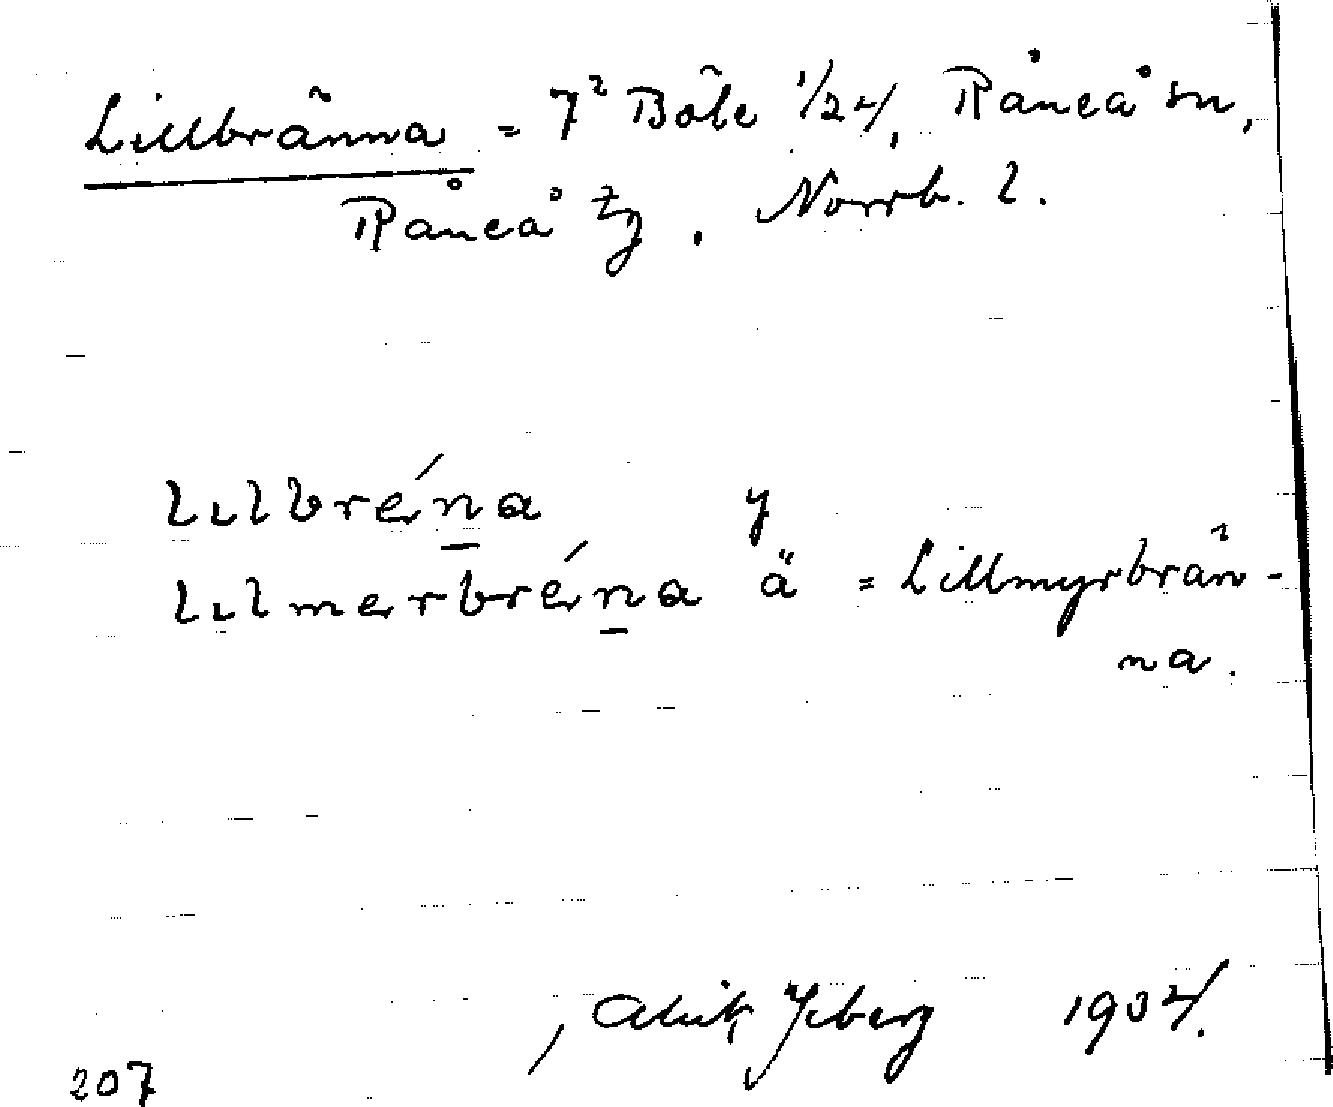 Lillbränna = 7² Böle 1/24, Råneå sn,
Råneå tg, Norrb. l.
lılbréna y
lılmerbréna ä = Lillmyrbrän-
na.
1904.
207